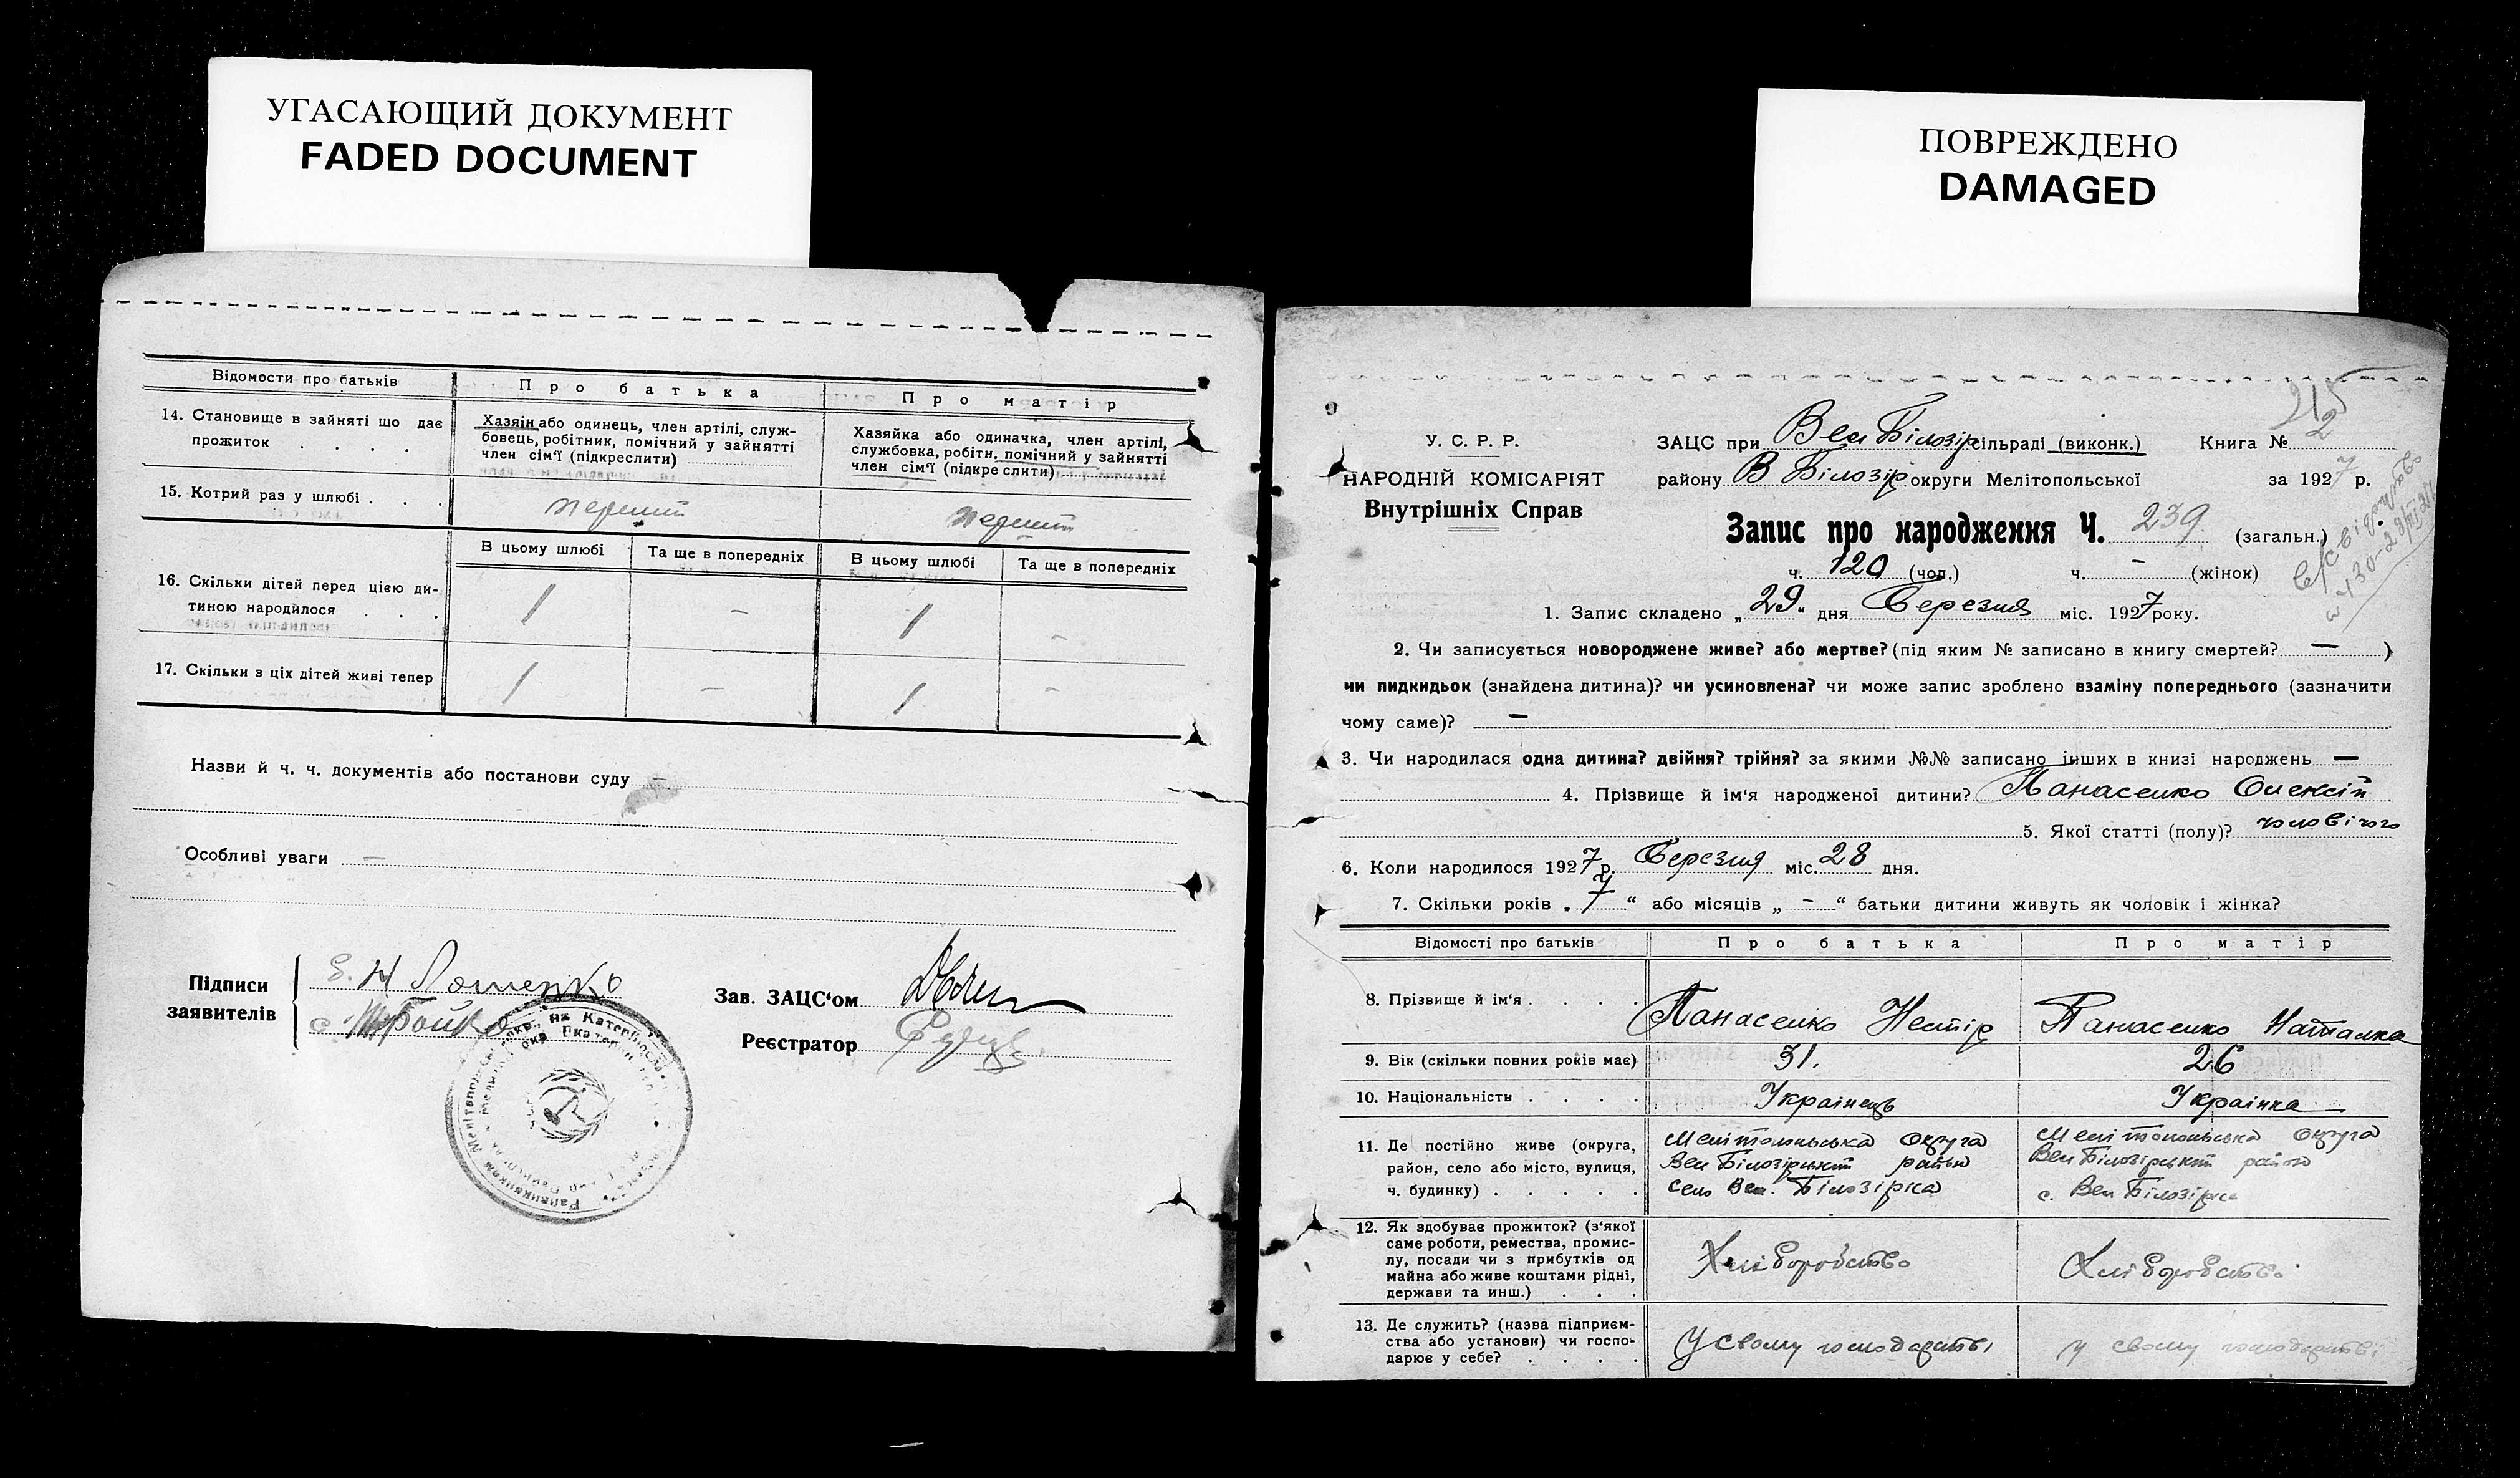 УГАСАЮЩИЙ ДОКУМЕНТ
FADED DOCUMENT
Відомости про батьків
Про батька
Про матір
14. Становище в зайняті що дає
прожиток . . . .
Хазяїн або одинець, член артілі, служ-
бовець, робітник, помічний у зайнятті
член сім'ї (підкреслити)
Хазяйка або одиначка, член артілі,
службовка, робітн. помічний у зайнятті
член сім'ї (підкреслити)
15. Котрий раз у шлюбі . . .
перший
перший
В цьому шлюбі
Та ще в попередніх
В цьому шлюбі
Та ще в попередніх
16. Скільки дітей перед цією ди-
тиною народилося . . .
1 – 1 –
17. Скільки з ціх дітей живі тепер
1 – 1 –
Назви й ч. ч. документів або постанови суду –
Особливі уваги –
Підписи
заявителів
Бойко
Зав. ЗАЦС'ом
Реєстратор
ПОВРЕЖДЕНО
DAMAGED
215
У. С. Р. Р.
НАРОДНІЙ КОМІСАРІЯТ
Внутрішніх Справ
ЗАЦС при Вел Білозір сільраді (виконк.) Книга № 2
району В Білозір округи Мелітопольської за 1927 р.
Запис про народження Ч. 239 (загальн.)
ч. 120 (чол.) ч. – (жінок)
1. Запис складено „29" дня Березня міс. 1927 року.
2. Чи записується новороджене живе? або мертве? (під яким № записано в книгу смертей? – )
чи пидкидьок (знайдена дитина)? чи усиновлена? чи може запис зроблено взаміну попереднього (зазначити
чому саме)? –
3. Чи народилася одна дитина? двійня? трійня? за якими №№ записано інших в книзі народжень –
4. Прізвище й ім'я народженої дитини? Панасенко Олексій
5. Якої статті (полу)? чоловічого
6. Коли народилося 1927 р. Березня міс. 28 дня.
7. Скільки років „7" або місяців „–" батьки дитини живуть як чоловік і жінка?
Відомості про батьків
Про батька
Про матір
8. Прізвище й ім'я . . . .
Панасенко Нестір
Панасенко Наталка
9. Вік (скільки повних років має)
31.
26
10. Національність . . . .
Українець
Українка
11. Де постійно живе (округа,
район, село або місто, вулиця,
ч. будинку) . . . . .
Мелітопольська округа
Вел Білозірський район
село Вел. Білозірка
Мелітопольська округа
Вел Білозірський район
с. Вел Білозірка
12. Як здобуває прожиток? (з'якої
саме роботи, ремества, промис-
лу, посади чи з прибутків од
майна або живе коштами рідні,
держави та инш.) . . .
Хліборобство
Хліборобство
13. Де служить? (назва підприєм-
ства або установи) чи госпо-
дарює у себе? . . . .
У свому господарстві
у свому господарстві